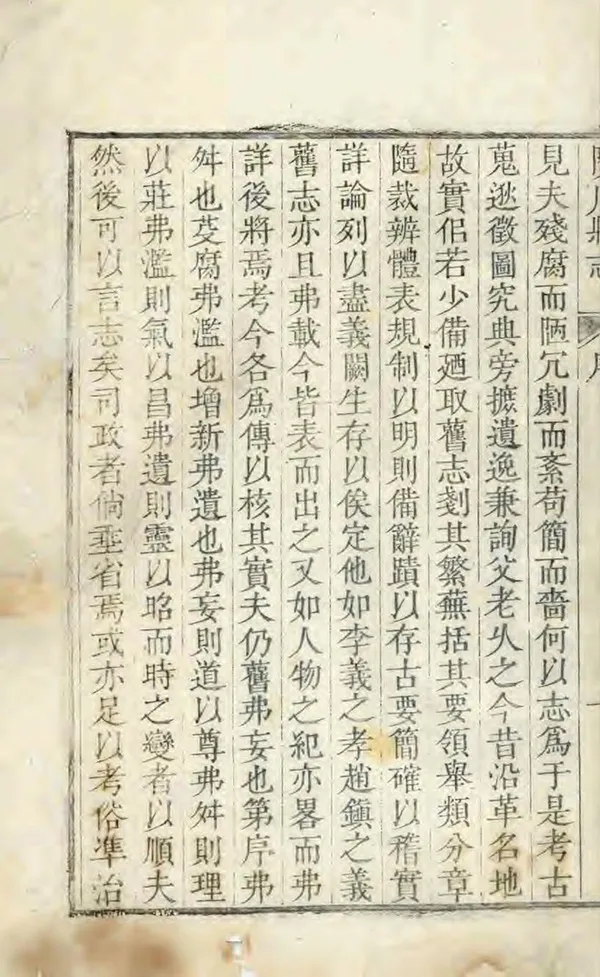 見夫殘腐而陋冗劇而紊苟簡而嗇何以志為于是考古
蒐逖徵圖究典旁摭遺逸兼詢父老乆之今昔沿革名地
故實佀若少備廼取舊志剗其繁蕪括其要領舉類分章
隨裁辨體表規制以明則備辭蹟以存古要簡確以稽實
詳論列以盡義闕生存以俟定他如李義之孝趙鎮之義
舊志亦且弗載今皆表而出之又如人物之紀亦畧而弗
詳後將焉考今各為傳以核其實夫仍舊弗妄也第序弗
舛也芟腐弗濫也增新弗遺也弗妄則道以尊弗舛則理
以莊弗濫則氣以昌弗遺則靈以昭而時之變者以順夫
然後可以言志矣司政者倘垂省焉或亦足以考俗準治